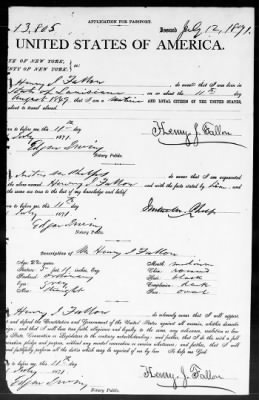 13,805
APPLICATION FOR PASSPORT. Received July 12, 1871.
UNITED STATES OF AMERICA.
STATE OF NEW YORK,
COUNTY OF NEW YORK,
Henry J Fallon do swear that I was born in
State of Louisiana on or about the 11th day
August 1849 that I am a native AND LOYAL CITIZEN OF THE UNITED STATES,
about to travel abroad.
to before me this 11th day
July 1871 Henry J. Fallon
Notary Public.
named Henry J Fallon and that the facts stated by him
are true to the best of my knowledge and belief.
to before me this 11th day
July 1871
Notary Public.
Description of Mr Henry J Fallon
Age: 22 years Mouth medium
Stature: 5 feet inches, Eng. Chin round
Forehead: ordinary Hair black
Eyes: gray Complexion dark
Nose: straight Face oval
Henry J Fallon do solemnly swear that I will support
and defend the Constitution and Government of the United States against all enemies, whether domestic
foreign; and that I will bear true faith, allegiance and loyalty to the same, any ordinance, resolution or
State, Convention or Legislature to the contrary notwithstanding; and further, that I do this with a full
determination, pledge and purpose, without any mental reservation or evasion whatsoever; and further, that I will
faithfully perform all the duties which may be required of me by law. So help me God.
to before me this 11th day
July 1871
Notary Public. Henry J. Fallon